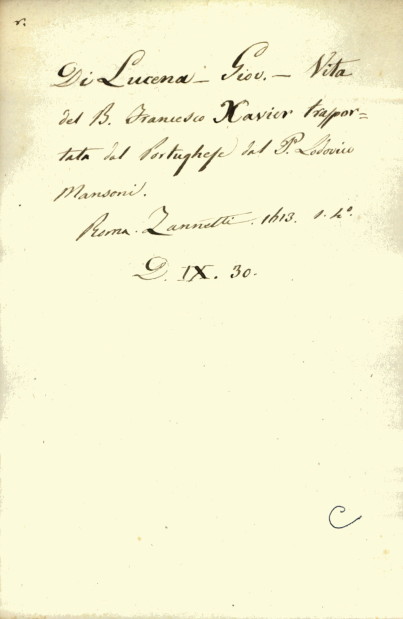 r.
Di Lucena – Giov. – Vita
del B. Francesco Xavier traspor=
tata dal Portughese dal P. Lodovico
Mansoni.
Roma. Zannetti. 1613. 1. 4º.
D. IX. 30.
C